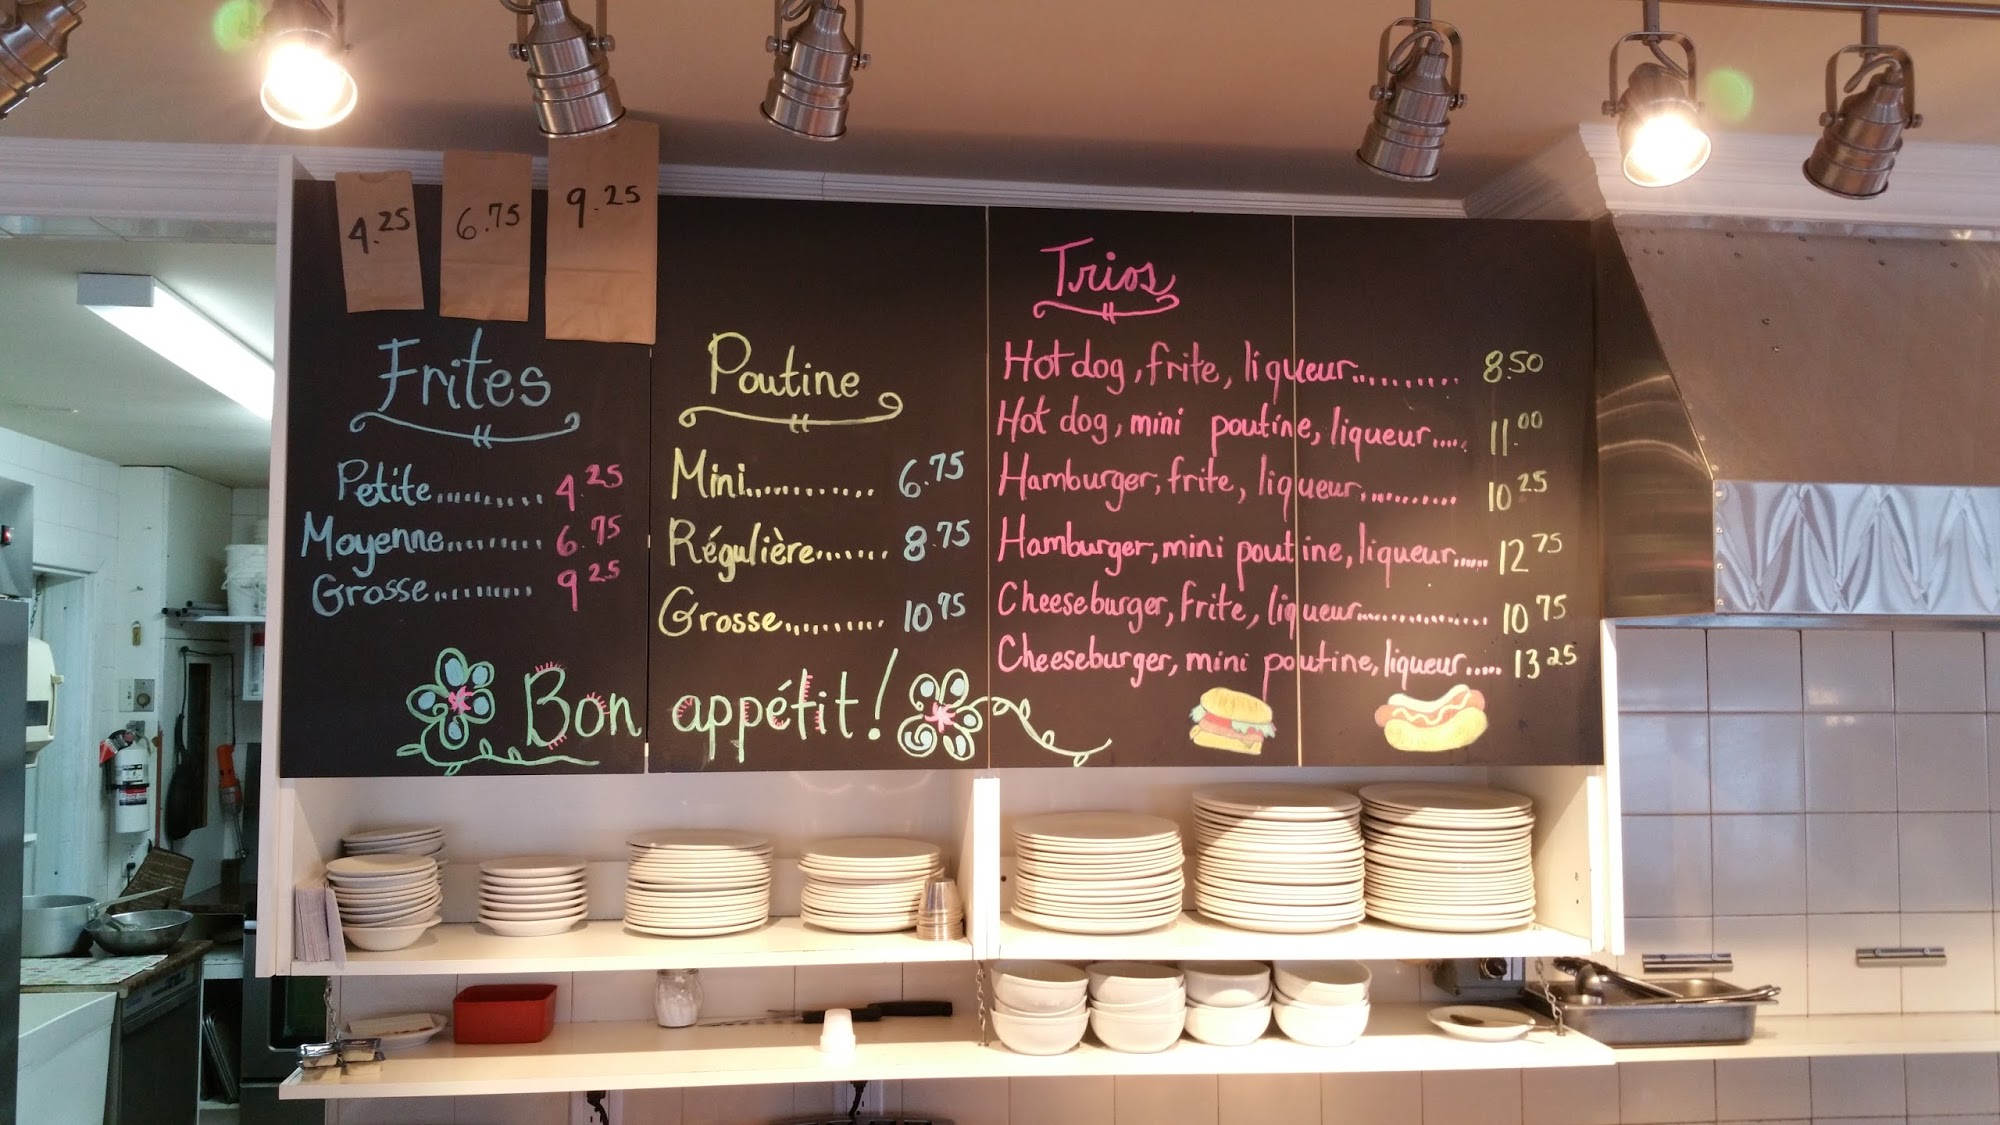 4.25
6.75
9.25
Frites
Petite.......... 4.25
Moyenne......... 6.75
Grosse.......... 9 25
Poutine
Mini............ 6.75
Régulière....... 8.75
Grosse.......... 10 75
Trios
Hot dog, frite, liqueur.......... 8.50
Hot dog, mini poutine, liqueur..... 11.00
Hamburger, frite, liqueur.......... 10 25
Hamburger, mini poutine, liqueur..... 12 75
Cheeseburger, frite, liqueur............... 10 75
Cheeseburger, mini poutine, liqueur..... 13 25
Bon appétit!